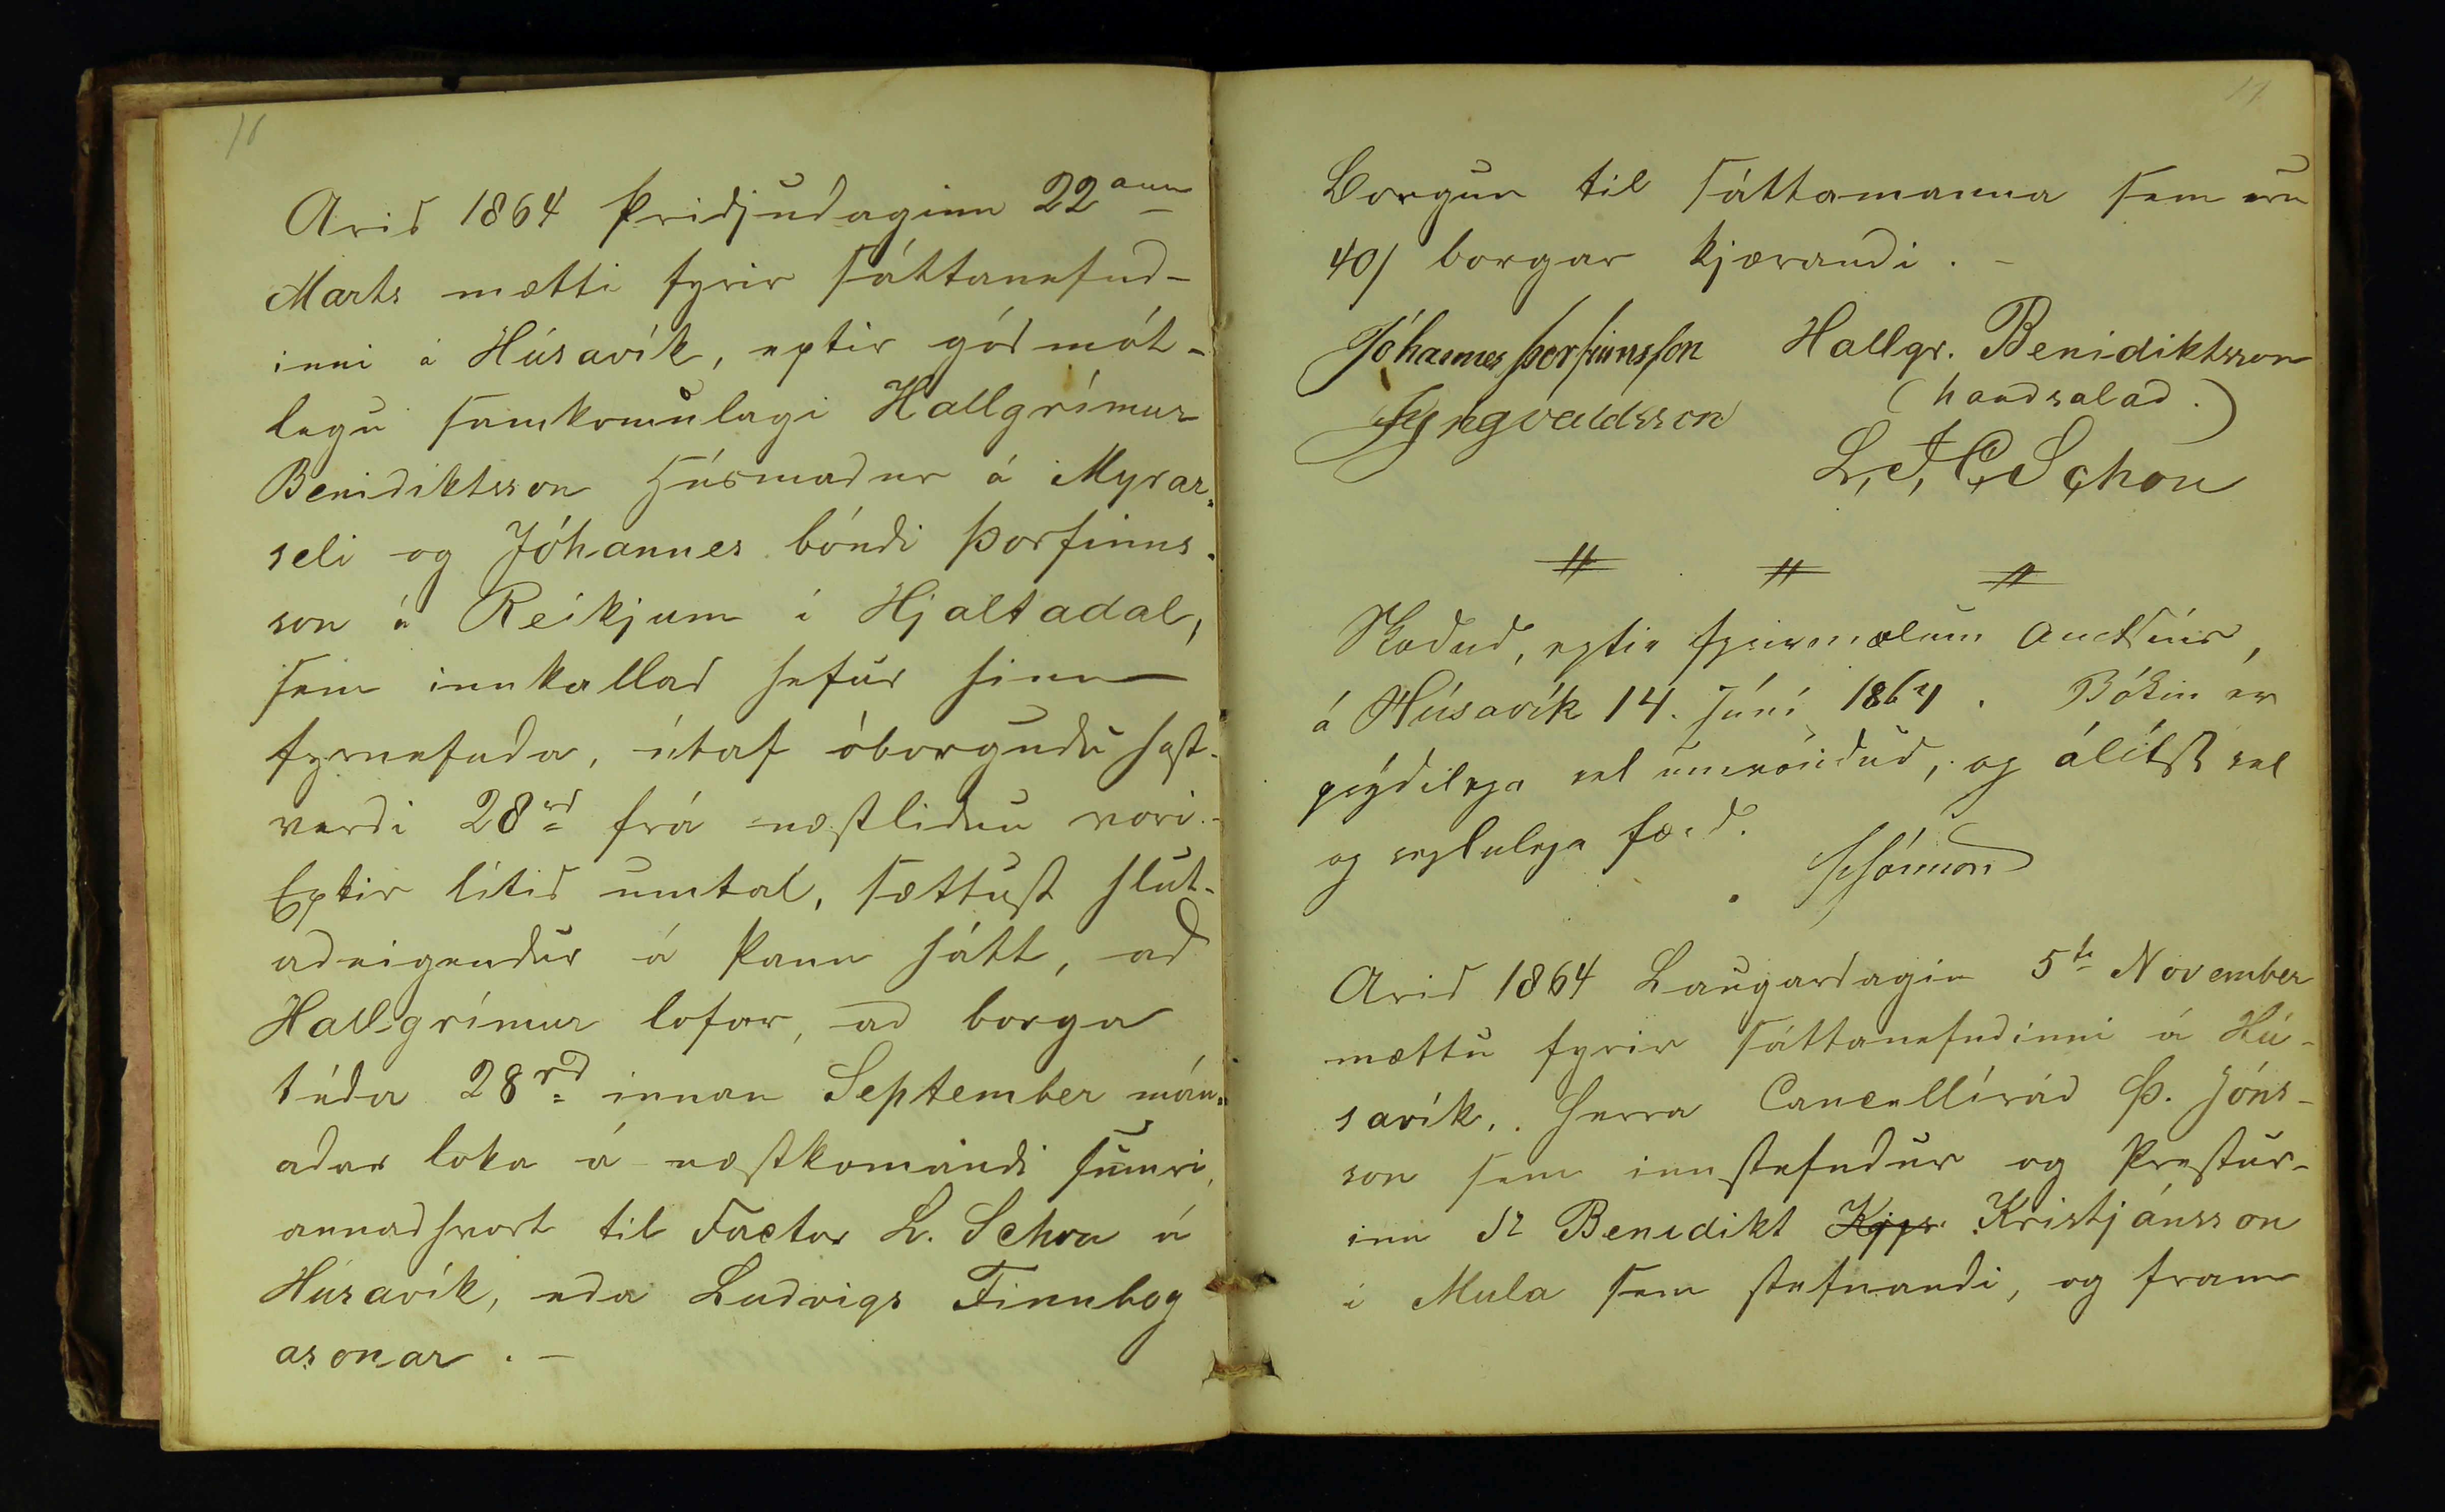 16
Arid 1864 Þridjudaginn 22ann
Marts mætti fyrir sáttanefnd-
inni á Húsavík, eptir gódmót-
legu samkomulagi Hallgrímur
Benidiktsson Húsmadur á Myrar-
seli og Jóhannes bóndi Þorfinns-
son á Reikjum í Hjaltadal,
sem innkallad hefur hinn
fyrnefnda, útaf óborgudu hest-
verdi 28rd frá næstlidnu vori.-
Eptir lítid umtal, sættust hlut-
adeigendur á þann hátt, ad
Hallgrímur lofar, ad borga
téda 28rd innan September mán-
adar loka á næstkomandi sumri,
annadhvort til Factor L. Schou á
Húsavík, eda Ludvigs Finnbog
asonar. -
17
Borgun til sáttamanna sem eru
40/ borgar kjærandi. -
Jóhannes Þorfinnsson Hallgr. Benidiktsson
(handsalad.)
Jngvaldsson
L. J. C. Schou
Skodud, eptir fyrirmælum
á Húsavík 14. Júní 1864. Bókin er
prýdilega vel umvöndud, og álítst vel
og reglulega færd.
Arid 1864 Laugardagin 5te November
mættu fyrir sáttanefndinni á Hú-
savík,. herra Cancellírád Þ. Jóns-
son sem innstefndur og Prestur-
inn Sr Benedikt Kristjánsson
í Mula sem stefnandi, og fram